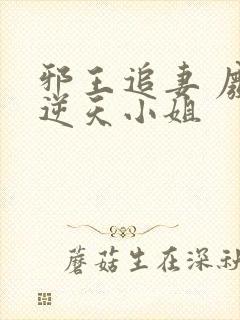 邪王追妻
逆天小姐
蘑菇生在深秋